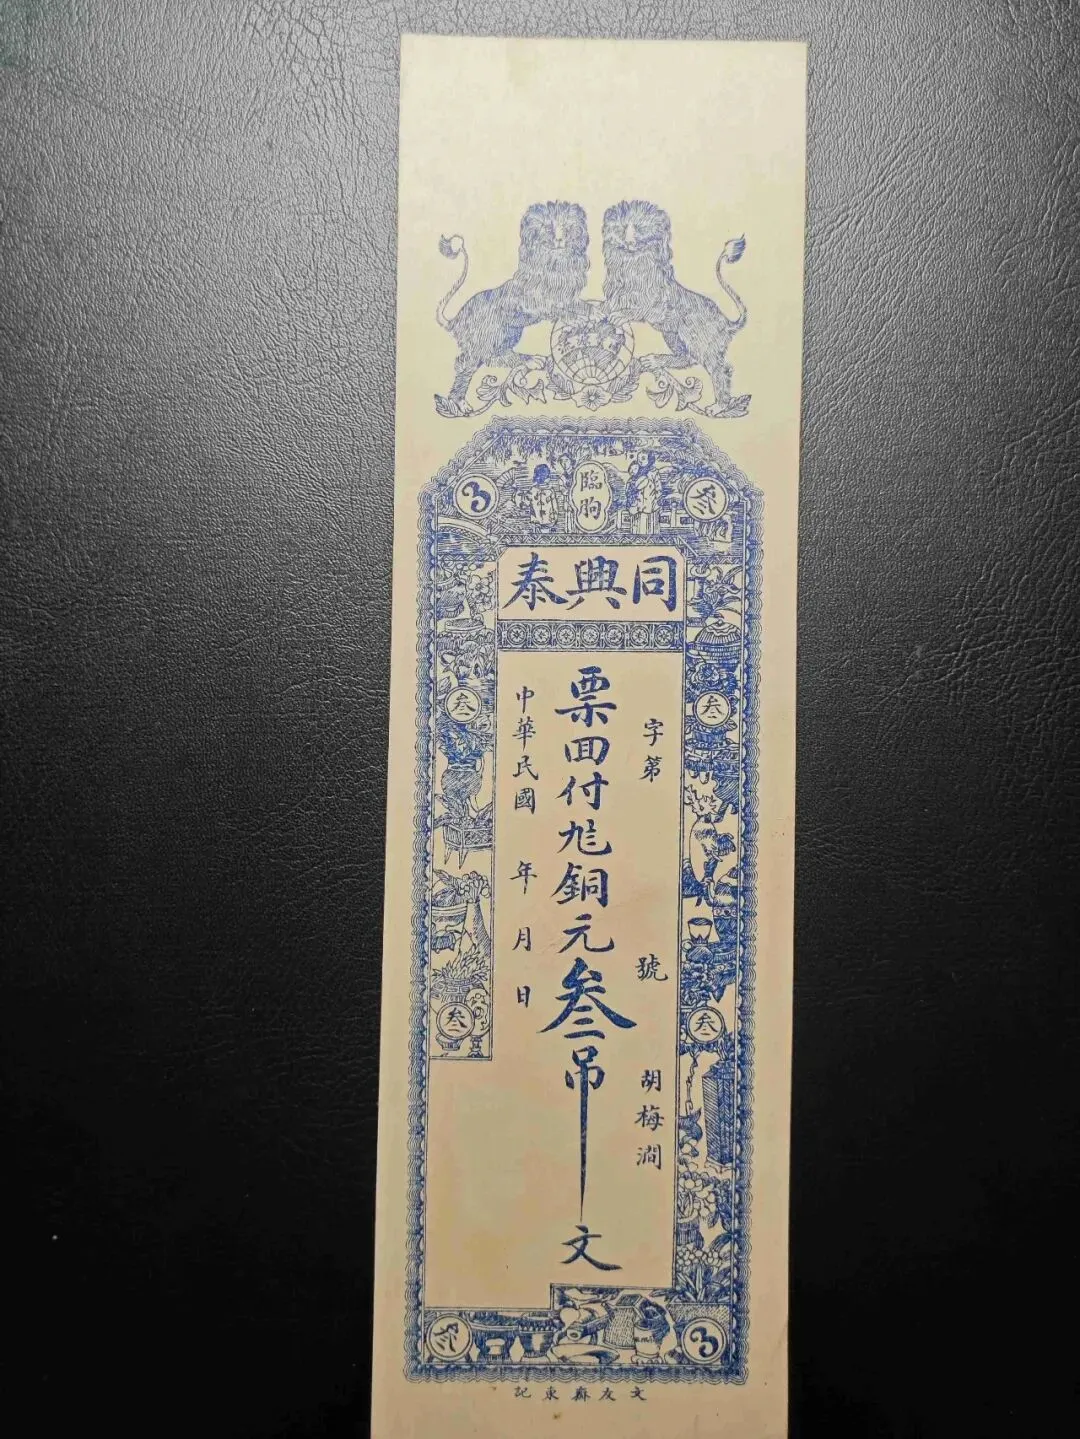 臨朐
3
叁
同興泰
字第 號 胡梅澗
票回付九銅元叁吊文
中華民國 年 月 日
叁
叁
叁
叁
叁
3
文友齋東記